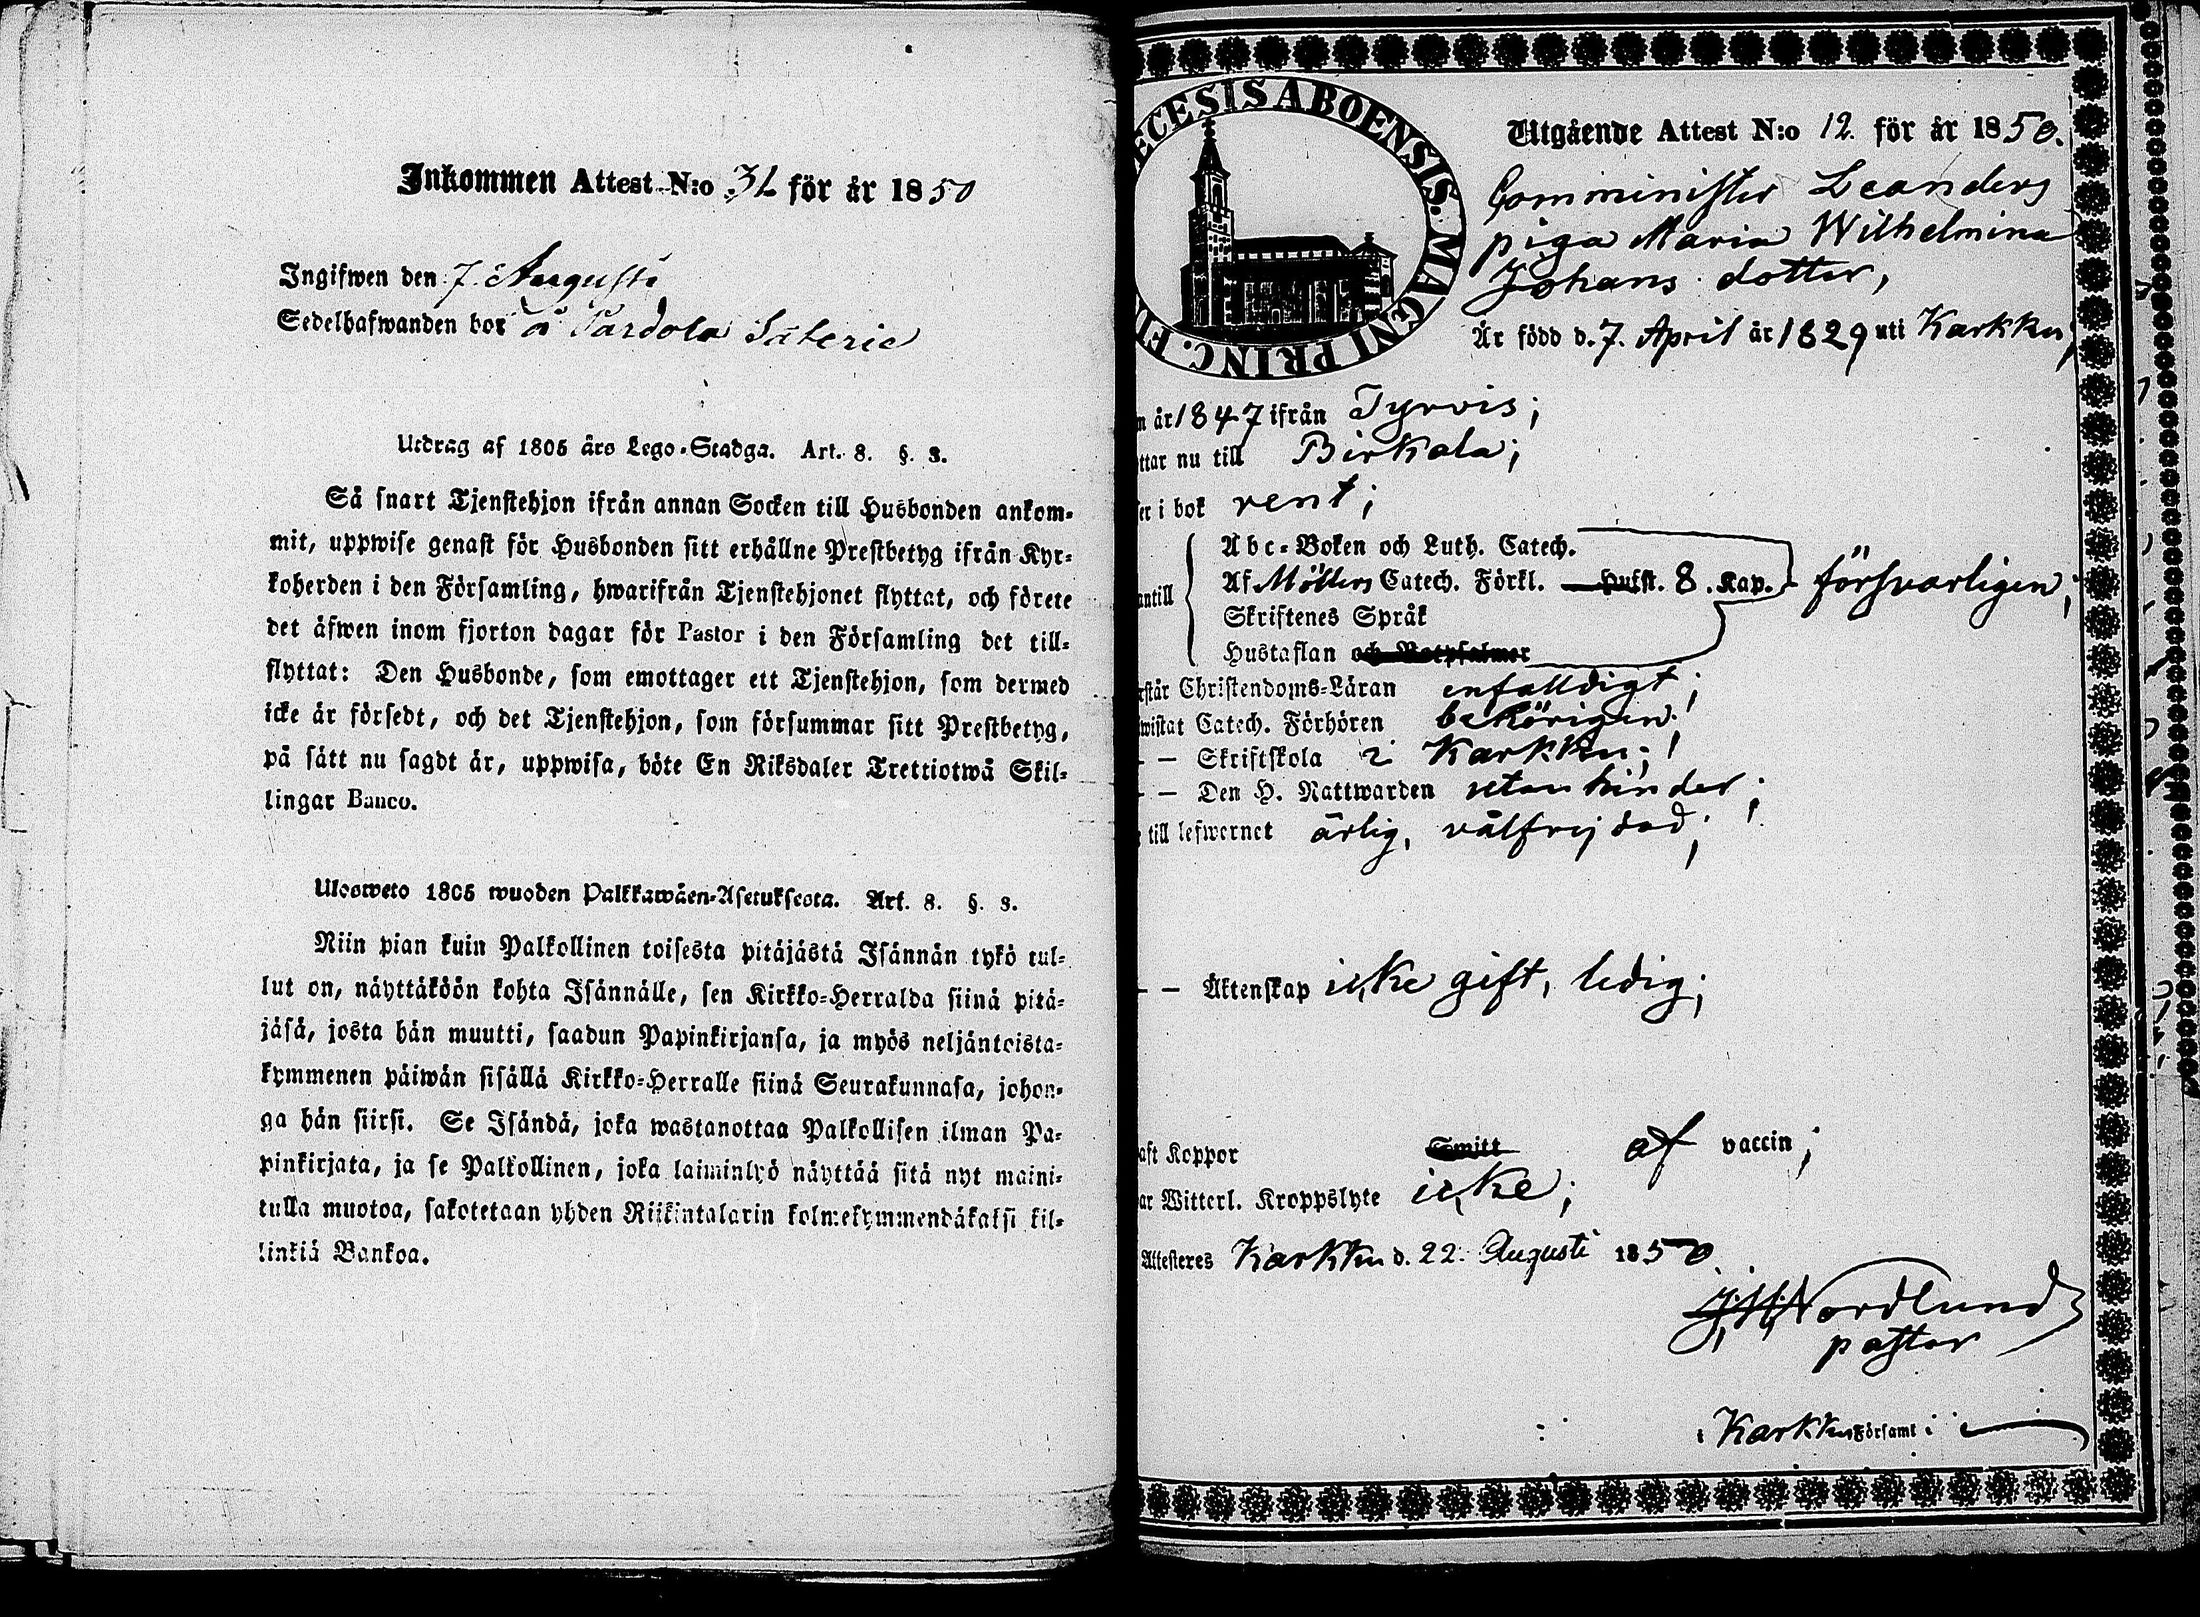 Inkommen Attest N:o 31 för år 1850
Ingifwen den 7. Augusti
Sedelhafwanden bor å Pardola Säterie
Utdrag af 1805 års Lego-Stadga. Art. 8. §. 3.
Så snart Tjenstehjon ifrån annan Socken till Husbonden ankom-
mit, uppwise genast för Husbonden sitt erhållne Prestbetyg ifrån Kyr-
koherden i den Församling, hwarifrån Tjenstehjonet flyttat, och förete
det äfwen inom fjorton dagar för Pastor i den Församling det till-
flyttat: Den Husbonde, som emottager ett Tjenstehjon, som dermed
icke är försedt, och det Tjenstehjon, som försummar sitt Prestbetyg,
på sätt nu sagdt är, uppwisa, böte En Riksdaler Trettiotwå Skil-
lingar Banco.
Ulosweto 1805 wuoden Palkkawäen-Asetuksesta. Art. 8. §. 3.
Niin pian kuin Palkollinen toisesta pitäjästä Isännän tykö tul-
lut on, näyttäköön kohta Isännälle, sen Kirkko-Herralda siinä pitä-
jäsä, josta hän muutti, saadun Papinkirjansa, ja myös neljäntoista-
kymmenen päiwän sisällä Kirkko-Herralle siinä Seurakunnasa, johon-
ga hän siirsi. Se Isändä, joka wastanottaa Palkollisen ilman Pa-
pinkirjata, ja se Palkollinen, joka laiminlyö näyttää sitä nyt maini-
tulla muotoa, sakotetaan yhden Riikintalarin kolmekymmendäkaksi kil-
linkiä Bankoa.
ECESIS ABOENSIS. MAGNI PRINC. FI
Utgående Attest N:o 12. för år 1850.
Comminister Leanders
piga Maria Wilhelmina
Johans dotter,
Är född d. 7. April år 1829 uti Karkku,
n år 1847 ifrån Tyrvis;
ttar nu till Birkala;
er i bok rent;
antill
Abc-Boken och Luth. Catech.
Af Möllers Catech. Förkl. Hufst. 8. Kap. försvarligen;
Skriftenes Språk
Hustaflan och Botpsalmer
rstår Christendoms-Läran enfalldigt;
wistat Catech. Förhören behörigen;
— — Skriftskola i Karkku;
— — Den H. Nattwarden utan hinder;
till lefwernet ärlig, välfrejdad;
— — Äktenskap icke gift, ledig;
aft Koppor Smitt af vaccin;
ar Witterl. Kroppslyte icke;
Attesteres Karkku d. 22. Augusti 1850
J. H. Nordlund
pastor
i Karkku Församl